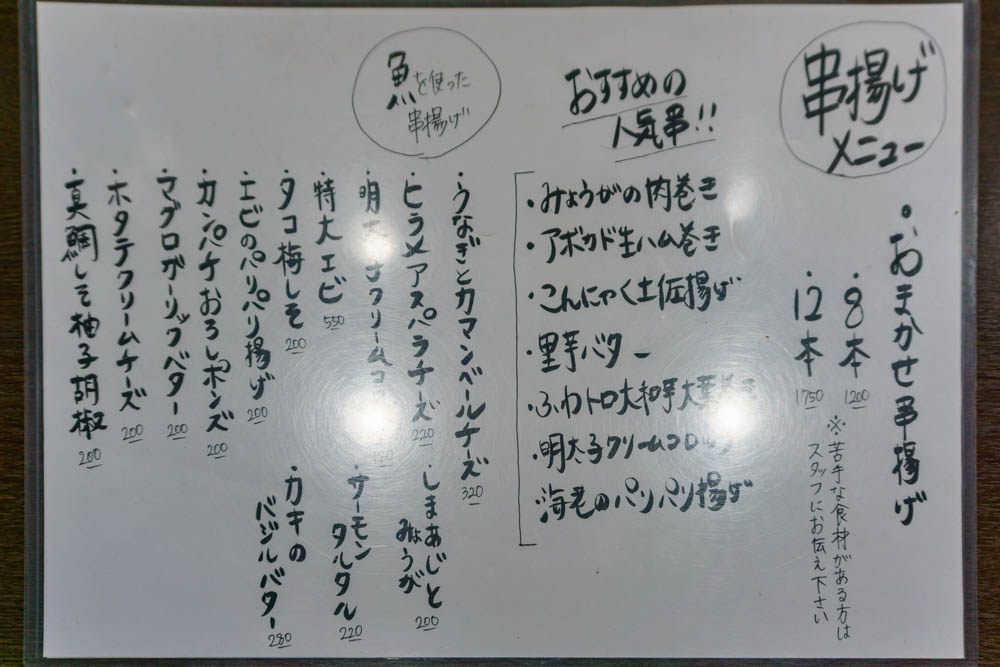 串揚げ
メニュー
・おまかせ串揚げ
・8本 1200
・12本 1750
※苦手な食材がある方は
スタッフにお伝え下さい
おすすめの
人気串!!
・みょうがの肉巻き
・アボカド生ハム巻き
・こんにゃく土佐揚げ
・里芋バター
・ふわトロ大和芋大葉巻き
・明太子クリームコロッケ
・海老のパリパリ揚げ
魚を使った
串揚げ
・うなぎとカマンベールチーズ 320
・ヒラメアスパラチーズ 220
・しまあじと
みょうが 200
・明太子クリームコロ
・サーモン
タルタル 220
・特大エビ 550
・カキの
バジルバター 280
・タコ梅しそ 200
・エビのパリパリ揚げ 200
・カンパチおろしポンズ 200
・マグロガーリックバター 200
・ホタテクリームチーズ 200
・真鯛しそ柚子胡椒 200